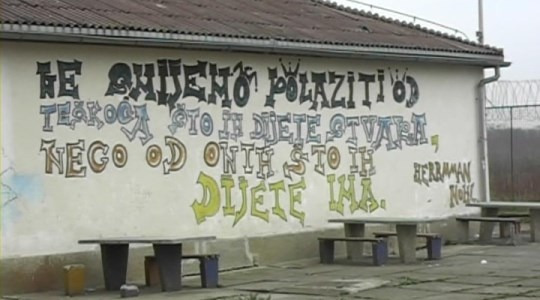 NE SMIJEMO POLAZITI OD
TEŠKOĆA ŠTO IH DIJETE STVARA,
NEGO OD ONIH ŠTO IH
DIJETE IMA.
HERRMAN
NOHL